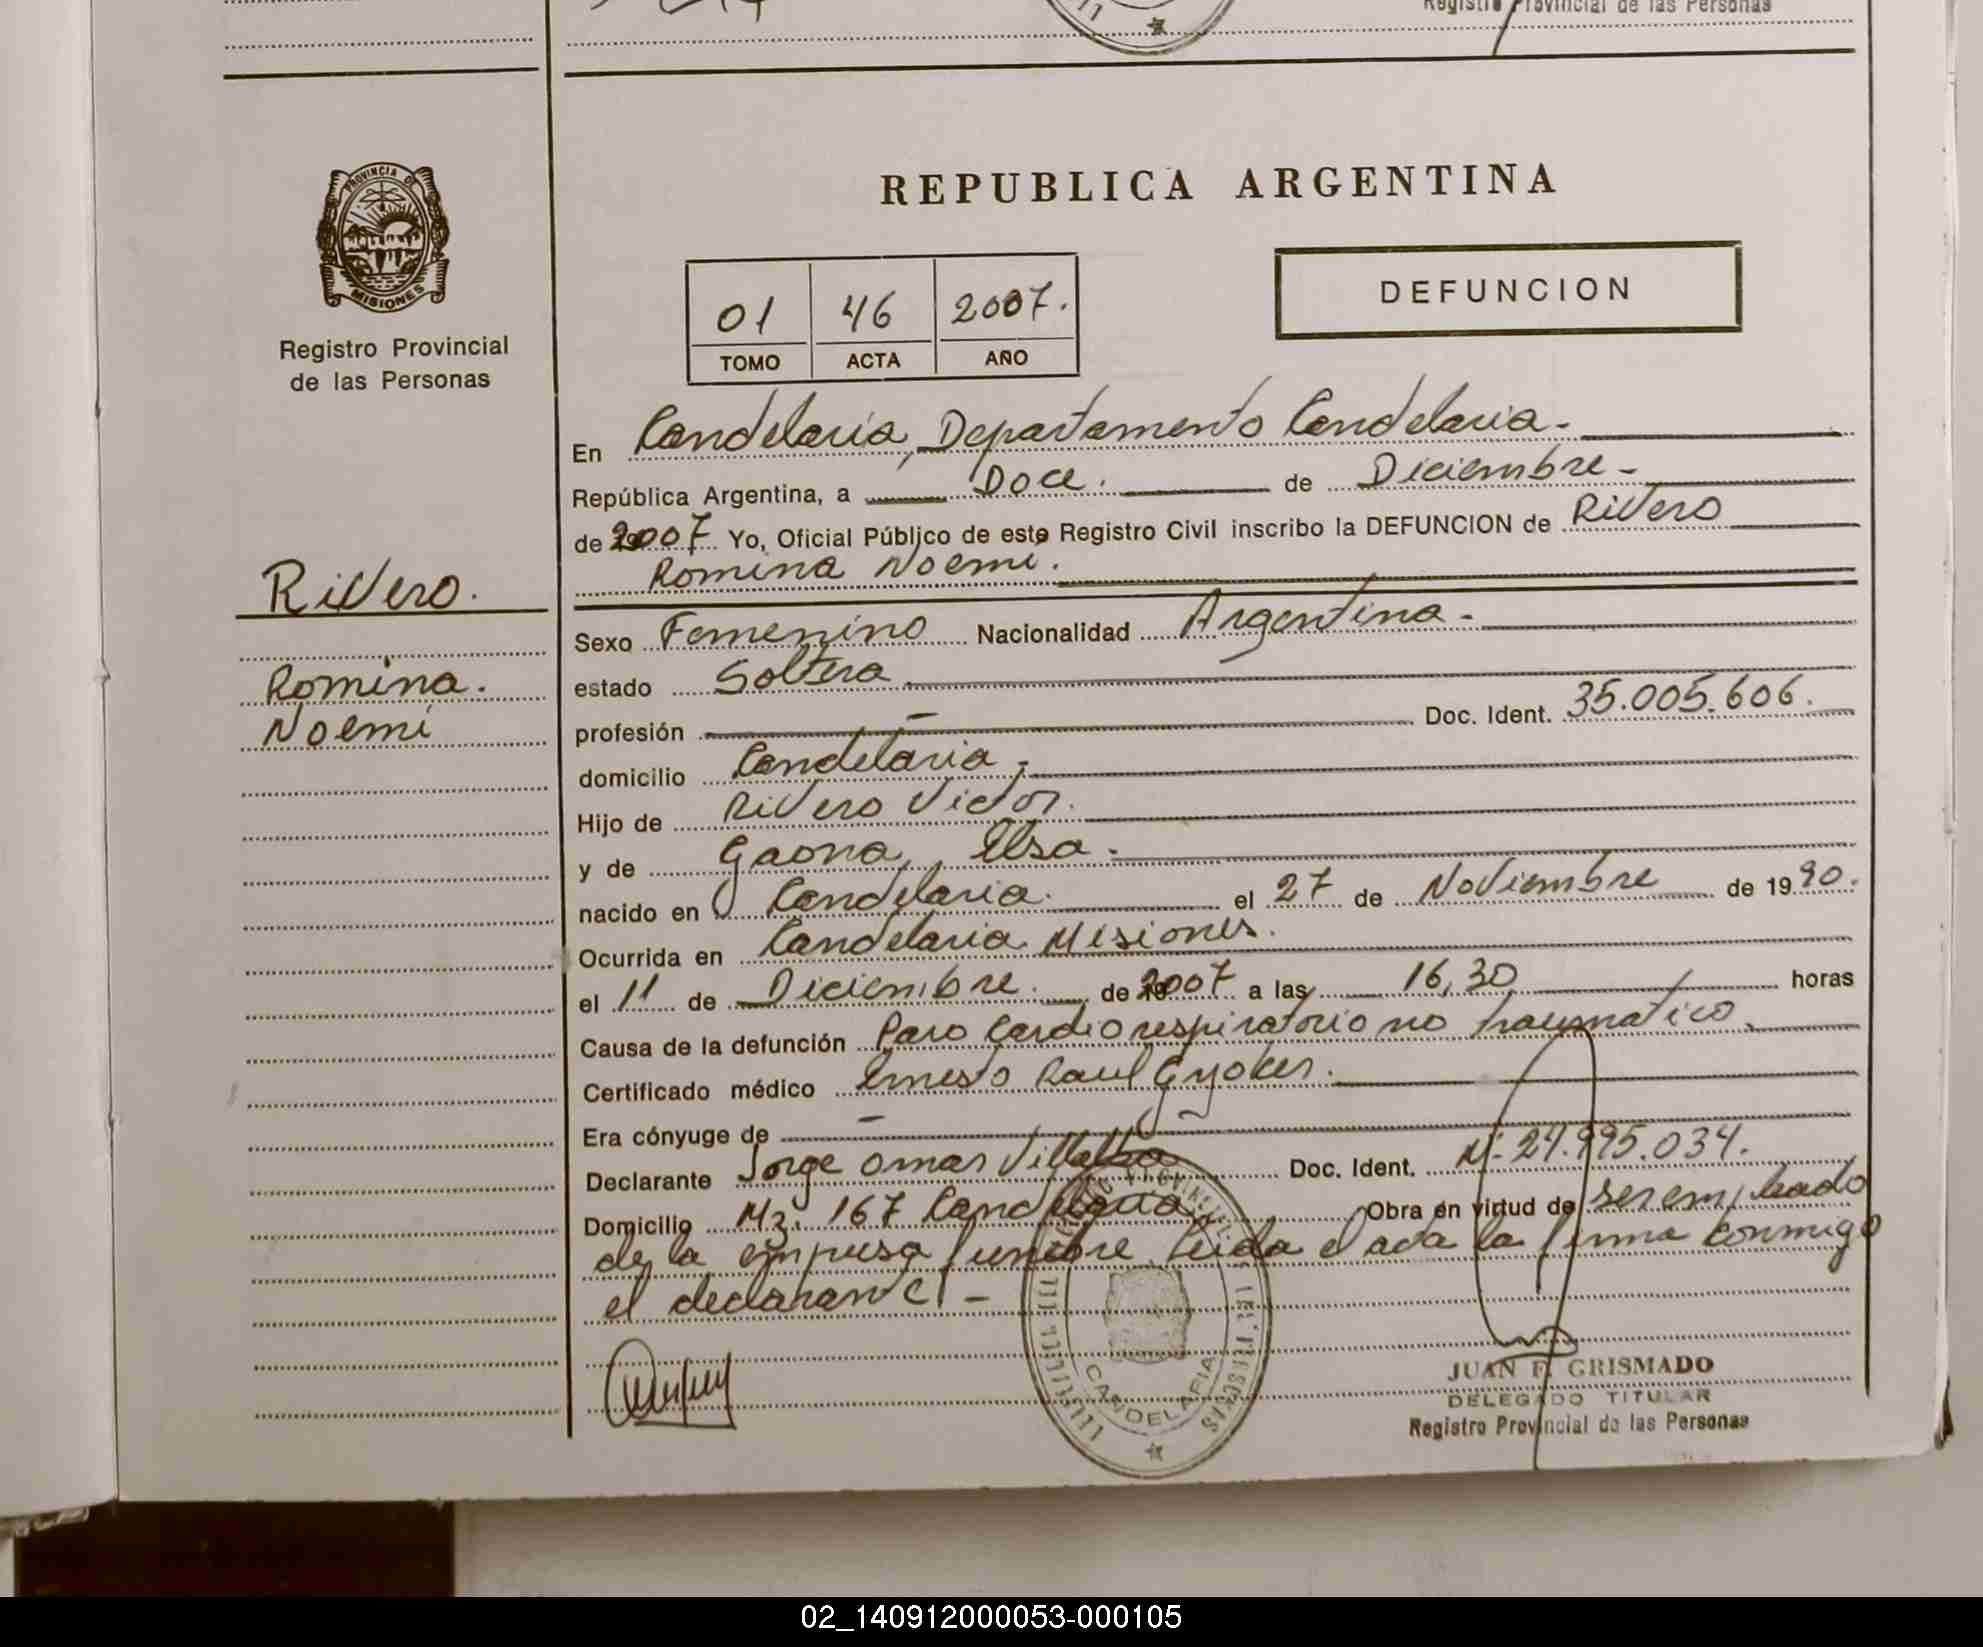 Registro Provincial de las Personas
PROVINCIA DE
MISIONES
Registro Provincial
de las Personas
REPUBLICA ARGENTINA
01 46 2007.
TOMO ACTA AÑO
DEFUNCION
En Candelaria, Departamento Candelaria.
República Argentina, a Doce. de Diciembre
de 2007 Yo, Oficial Público de este Registro Civil inscribo la DEFUNCION de Rivero
Romina Noemi.
Rivero.
Romina.
Noemi
Sexo Femenino Nacionalidad Argentina
estado Soltera
profesión — Doc. Ident. 35.005.606.
domicilio Candelaria
Hijo de Rivero Victor.
y de Gaona, Elsa.
nacido en Candelaria. el 27 de Noviembre de 1990.
Ocurrida en Candelaria Misiones.
el 11 de Diciembre. de 2007 a las 16,30 horas
Causa de la defunción Paro Cardiorespiratorio no traumatico.
Certificado médico Ernesto Raul Gyoker.
Era cónyuge de —
Declarante Jorge Omar Villalba Doc. Ident. N: 24.995.034.
Domicilio Mz. 167 Candelaria Obra en virtud de ser empleado
de la empresa funebre leida el acta la firma conmigo
el declarante -
CANDELARIA
JUAN F. GRISMADO
DELEGADO TITULAR
Registro Provincial de las Personas
02_140912000053-000105